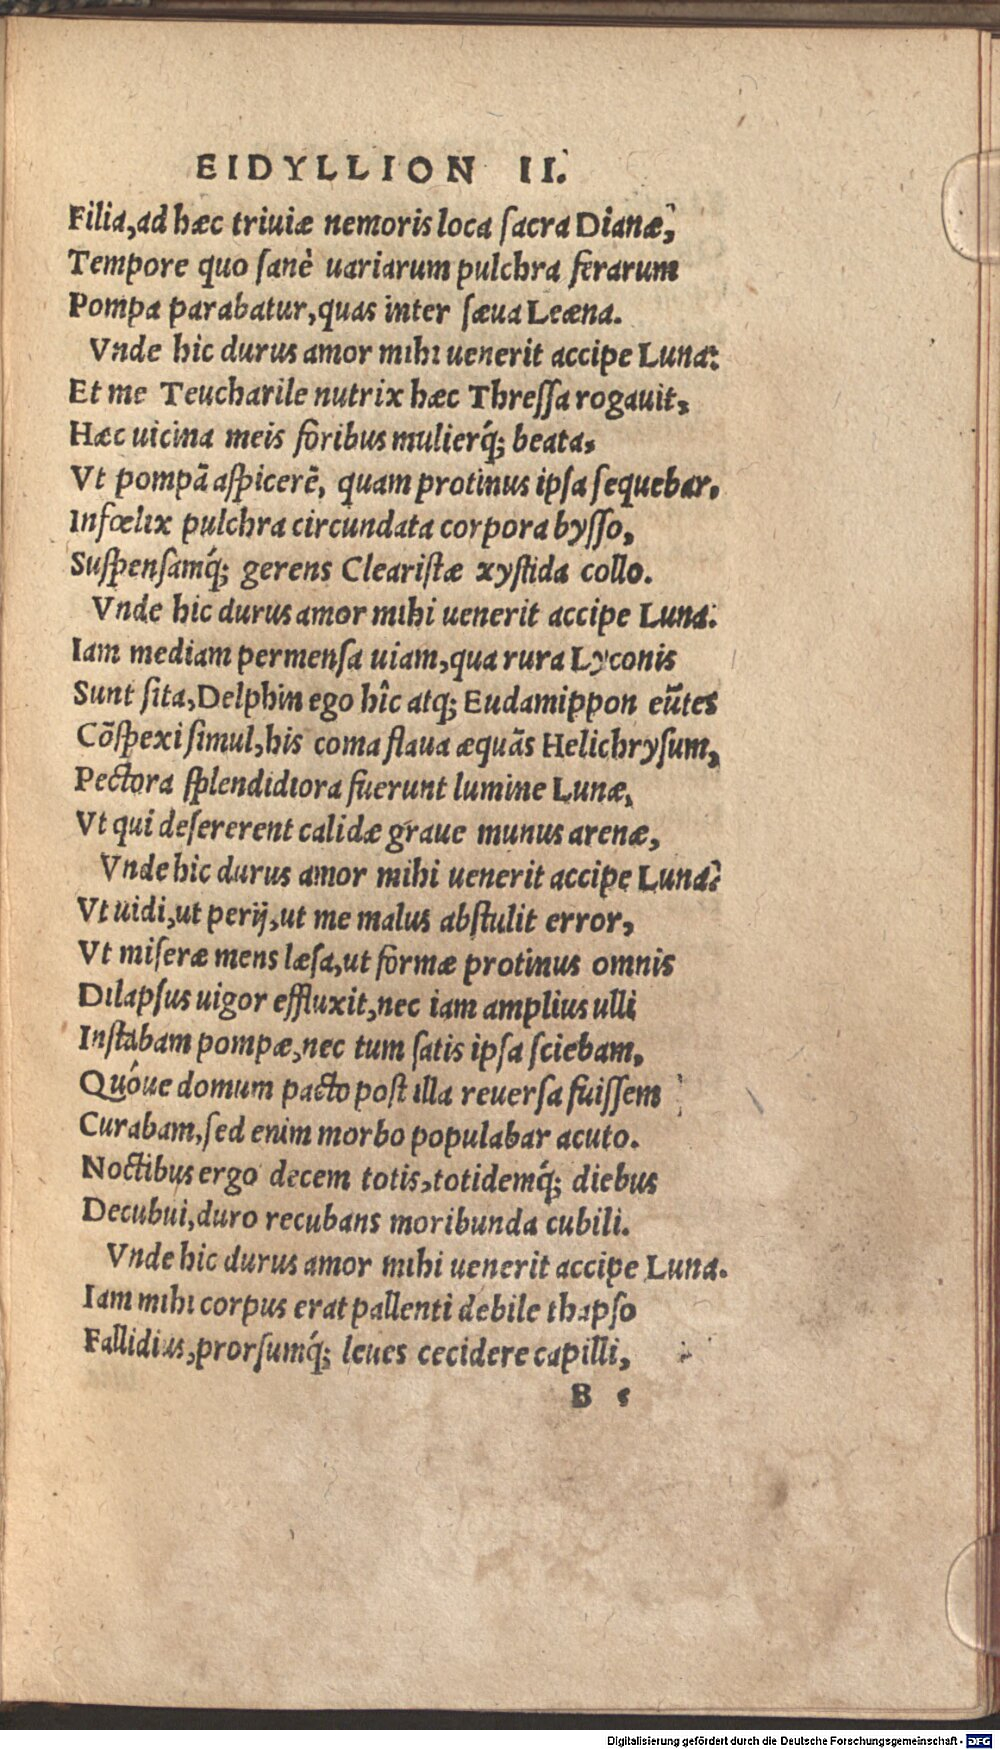 EIDYLLION II.
Filia,ad hæc triuiæ nemoris loca ſacra Dianæ,
Tempore quo ſanè uariarum pulchra ferarum
Pompa parabatur,quas inter ſæua Leæna.
Vnde hic durus amor mihi uenerit accipe Luna.
Et me Teucharile nutrix hæc Threſſa rogauit,
Hæc uicina meis foribus mulierq́; beata,
Vt pompã aſpicerẽ, quam protinus ipſa ſequebar,
Infœlix pulchra circundata corpora byſſo,
Suſpenſamq́; gerens Cleariſtæ xyſtida collo.
Vnde hic durus amor mihi uenerit accipe Luna.
Iam mediam permenſa uiam,qua rura Lyconis
Sunt ſita,Delphin ego hîc atq; Eudamippon eũtes
Cõſpexi ſimul,his coma flaua æquãs Helichryſum,
Pectora ſplendidiora fuerunt lumine Lunæ,
Vt qui deſererent calidæ graue munus arenæ,
Vnde hic durus amor mihi uenerit accipe Luna?
Vt uidi,ut perij,ut me malus abſtulit error,
Vt miſeræ mens læſa,ut formæ protinus omnis
Dilapſus uigor effluxit,nec iam amplius ulli
Inſtabam pompæ,nec tum ſatis ipſa ſciebam,
Quóue domum pacto poſt illa reuerſa fuiſſem
Curabam,ſed enim morbo populabar acuto.
Noctibus ergo decem totis,totidemq́; diebus
Decubui,duro recubans moribunda cubili.
Vnde hic durus amor mihi uenerit accipe Luna.
Iam mihi corpus erat pallenti debile thapſo
Fallidius,prorſumq́; leues cecidere capilli,
B
Digitalisierung gefördert durch die Deutsche Forschungsgemeinschaft - DFG